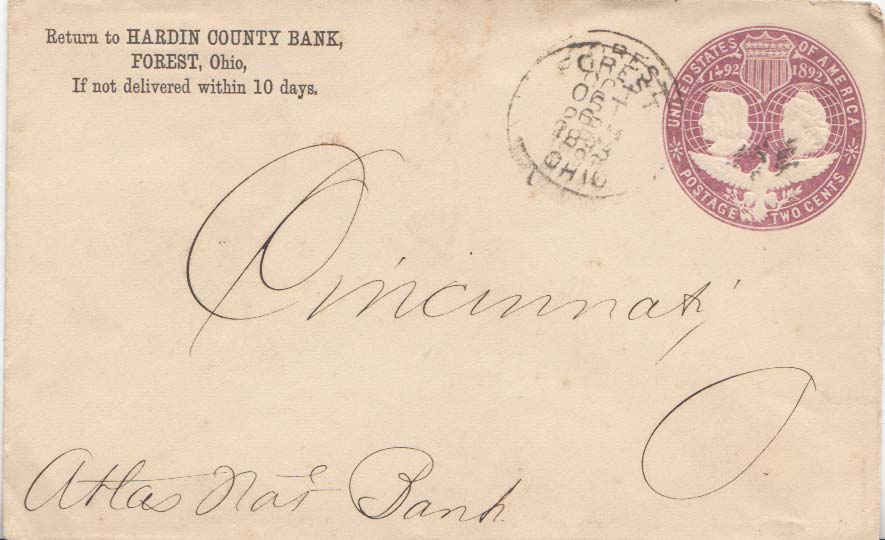 Return to HARDIN COUNTY BANK,
FOREST, Ohio,
If not delivered within 10 days.
FOREST
OHIO
UNITED STATES OF AMERICA
1492 1892
POSTAGE TWO CENTS
Cincinnati,
O.
Atlas Nat Bank